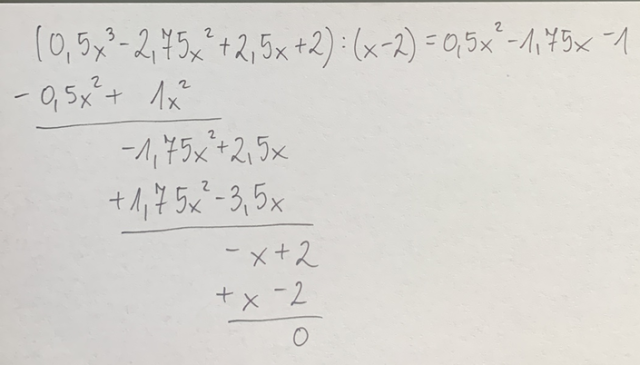 (0,5x³-2,75x²+2,5x+2):(x-2)=0,5x²-1,75x-1
-0,5x²+ 1x²
-1,75x²+2,5x
+1,75x²-3,5x
-x+2
+x-2
0